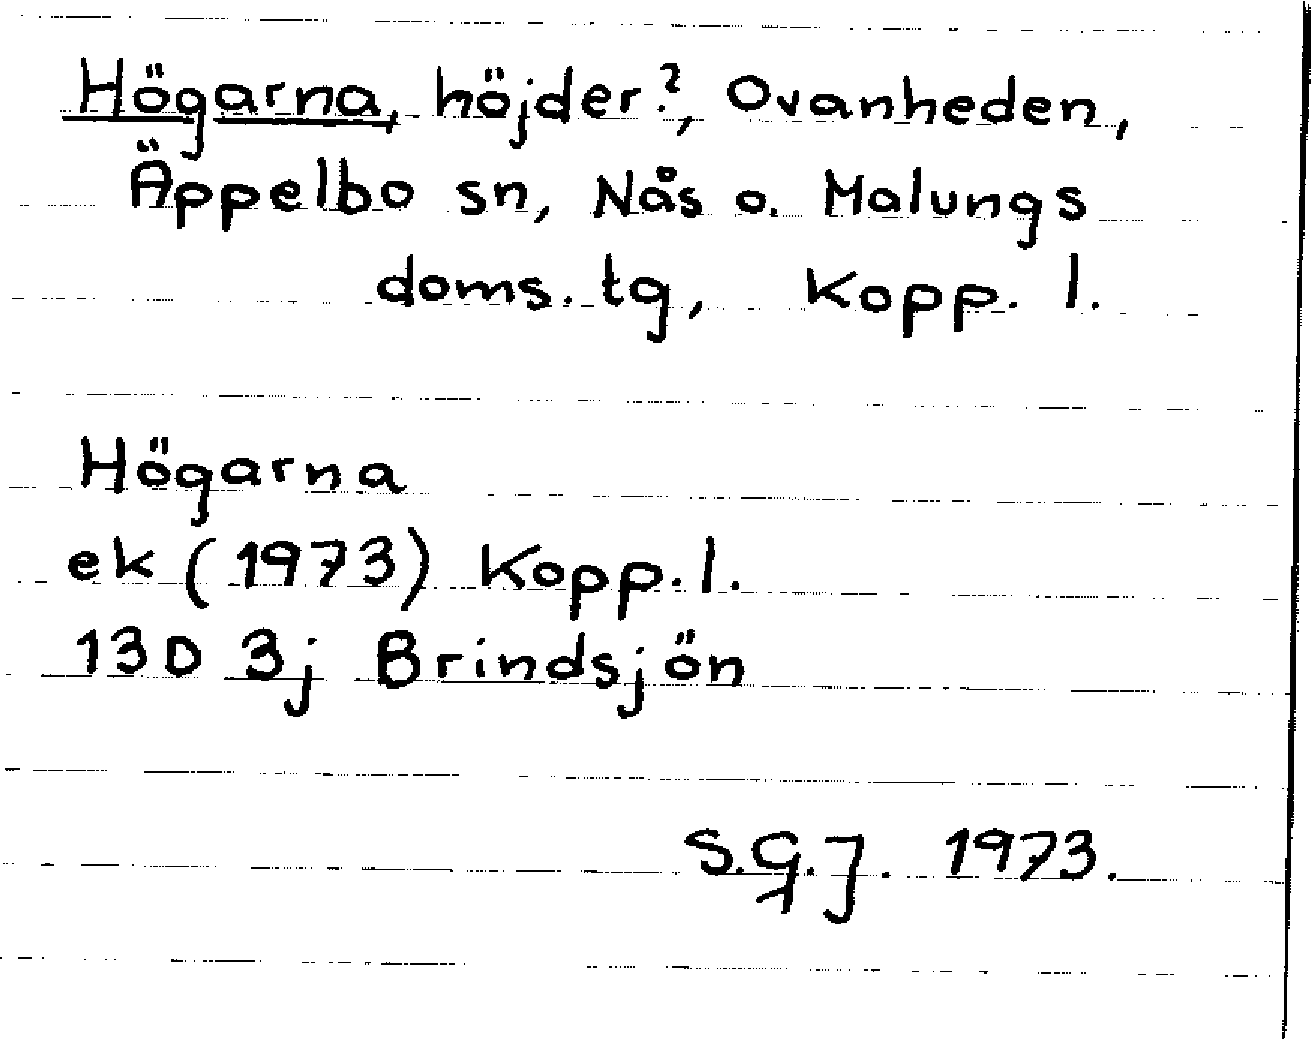 Högarna, höjder?, Ovanheden,
Äppelbo sn, Nås o. Malungs
doms. tg, Kopp. l.
Högarna
ek (1973) Kopp. l.
13D 3j Brindsjön
S.G.J. 1973.